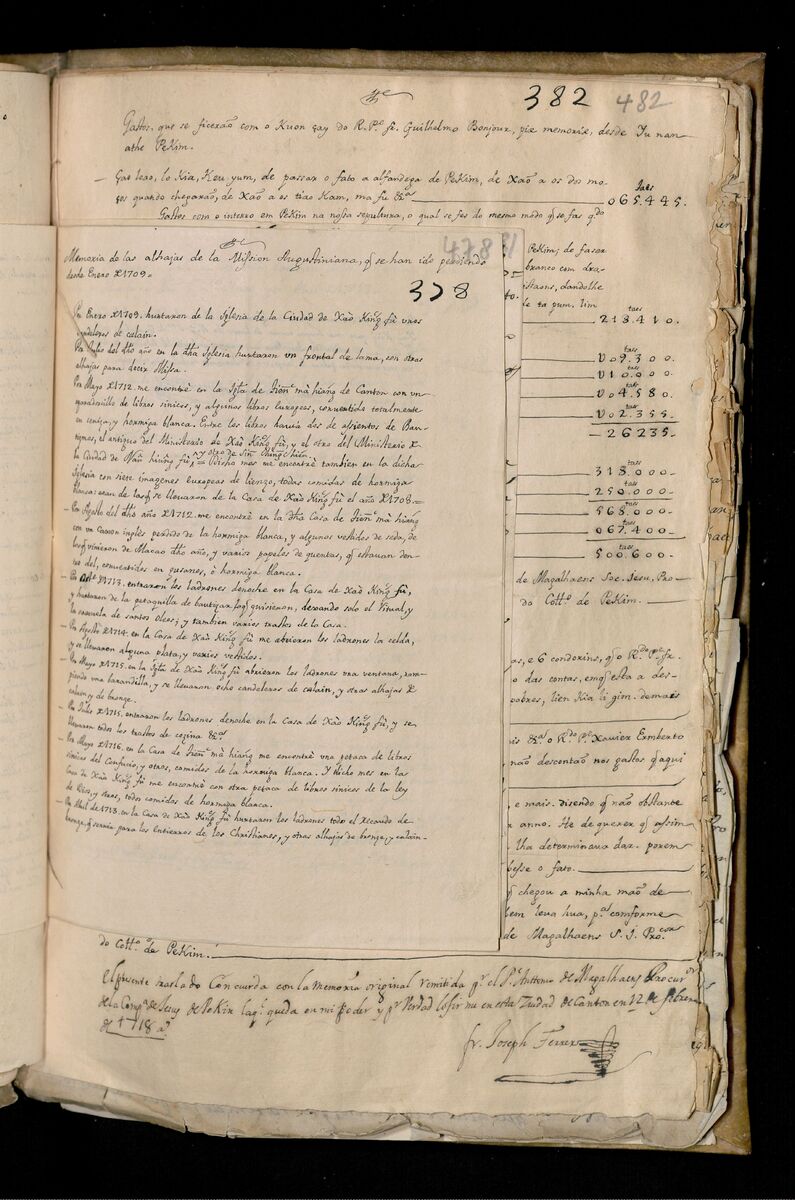 382 482
Gastos, que se ficerão com o Kuon çay do R. P.e fr. Guilhelmo Bonjour, pie memorie, desde Yu nan
athe PeKim.
— Gao leao, lo Kia, Keu yum, de passar o fato a alfandega de PeKim, de Xaō a os dos mo-
ços quando chegarão, de Xaō a os tiao Kam, ma fu &.a
taes
065.445.
Gastos com o interro em PeKim na nossa sepultura, o qual se fes do mesmo modo q̃ se fas q.do
478
Memoria de las alhajas de la Mission Augustiniana, q̃ se han ido perdiendo
desde Enero d 1709.
378
Por Enero d 1709. hurtaron de la Iglesia de la Ciudad de Xaō King fù unos
candeleros de calain.
Por Julio del dho año en la dha Iglesia hurtaron un frontal de lama, con otras
alhajas para decir Missa.
Por Mayo d 1712. me encontrè en la Igla de mà hiang de Canton con un
de libros sinicos, y algunos libros europeos, convertido totalmente
en ceniza, y hormiga blanca. Entre los libros havia dos de assientos de Bau-
tismos, el antiguo del Ministerio de Xaō King fù, y el otro del Ministerio d
la Ciudad de Nan hiung fù, y otro de Sin Ching hien. = Dicho mes me encontrè tambien en la dicha
Iglesia con siete imagenes europeas de lienzo, todas comidas de hormiga
blanca: eran de las q̃ se llevaron de la Casa de Xaō King fù el año d 1708 =
— Por Agosto del dho año d 1712. me encontrè en la dha Casa de mà hiang
con un Caxon inglès perdido de la hormiga blanca, y algunos vestidos de seda, de
los q̃ vinieron de Macao dho año, y varios papeles de quentas, q̃ estavan den-
tro del, convertidos en gusanos, ò hormiga blanca.
— Por d 1713. entraron los ladrones denoche en la Casa de Xaō King fù,
y hurtaron de la petaquilla de bautizar lo q̃ quisieron, dexando solo el Ritual, y
la caxuela de santos oleos; y tambien varios trastos de la Casa.
— Por Agosto d 1714. en la Casa de Xaō King fù me abrieron los ladrones la celda,
y se llevaron alguna plata, y varios vestidos.
— Por Mayo d 1715. en la Igla de Xaō King fù abrieron los ladrones una ventana, rom-
piendo una barandilla, y se llevaron ocho candeleros de calain, y otras alhajas d
calain, y de bronze.
— Por Julio d 1715. entraron los ladrones denoche en la Casa de Xaō King fù, y se
llevaron todos los trastos de cozina &.a
— Por Mayo d 1716. en la Casa de mà hiang me encontrè una petaca de libros
sinicos del Confucio, y otros, comidos de la hormiga blanca. Y dicho mes en la
Casa de Xaō King fù me encontrè con otra petaca de libros sinicos de la ley
de Dios, y otros, todos comidos de hormiga blanca.
— Por Abril de 1713. en la Casa de Xaō King fù hurtaron los ladrones todo el recaudo de
bronze, q̃ servia para los Entierros de los Christianos, y otras alhajas de bronze, y calain.
PeKim; de fasor
branco com dra-
staons, dandolhe
e ta pum. lim
taes
218.410.
taes
009.300.
taes
010.000.
taes
004.580.
taes
002.355.
26235.
taes
318.000.
taes
250.000.
taes
568.000.
taes
067.400.
taes
500.600.
de Magalhaens Soc. Jesu, Pro-
do Coll.o de PeKim.
as, e 6 condorins, q̃ o R.do P.e fr.
o das contas, em q̃ esta a des-
pobres, lien Kia li gim. demais
is &.a o R.do P.e Xavier Ernberto
não descontão nos gastos q̃ aqui
e mais. disendo q̃ não obstante
anno. He de querer q̃ assim
lha determinava dar. porem
besse o fato.
q̃ chegou a minha mão de
tem leva hua, p.a comforme
de Magalhaens S. J. Pro.cor
do Coll.o de PeKim.
El presente traslado Concuerda con la Memoria original remitida p.r el P. Antonio de Magalhaens Procur.or
de la Comp.a de Jesus de PeKin laq.l queda en mi Poder y p.r Verdad lo firme en esta Ziudad de Canton en 12 de febrero
de 1718 a.s
fr. Joseph Ferrer